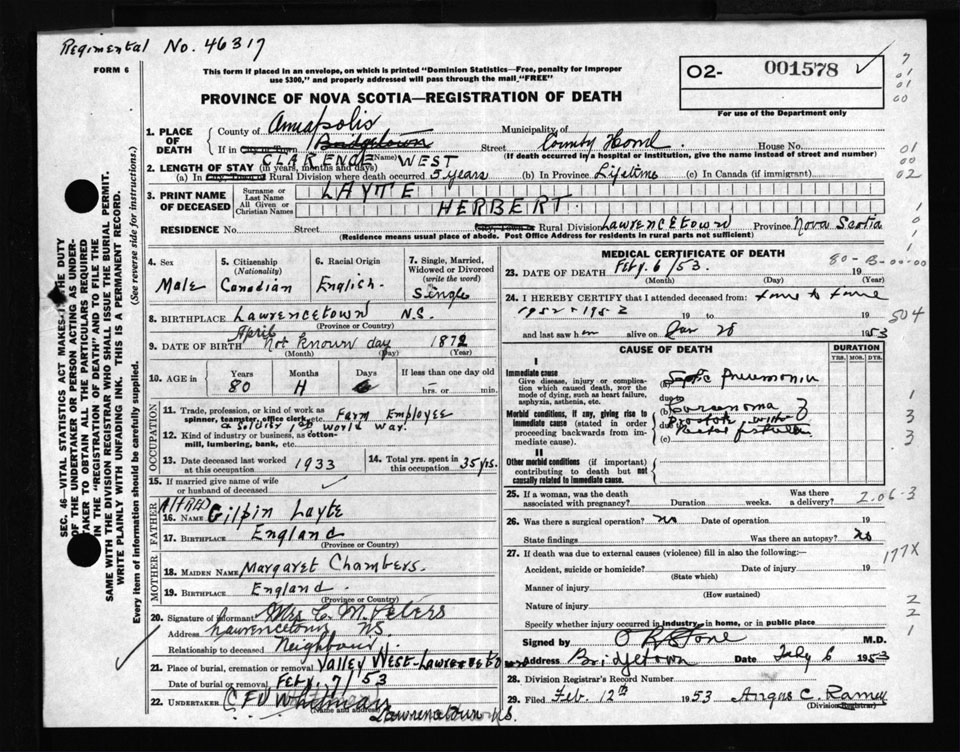 Regimental No. 46317
FORM 6
This form if placed in an envelope, on which is printed "Dominion Statistics—Free, penalty for improper
use $300," and properly addressed will pass through the mail "FREE"
O2- 001578
For use of the Department only
PROVINCE OF NOVA SCOTIA—REGISTRATION OF DEATH
1. PLACE OF DEATH
County of Annapolis Municipality of
If in City or Town Bridgetown Street County Home House No.
(Name) (If death occurred in a hospital or institution, give the name instead of street and number)
CLARENCE WEST
2. LENGTH OF STAY (in years, months and days)
(a) In City, Town or Rural Division where death occurred 5 years (b) In Province Lifetime (c) In Canada (if immigrant)
3. PRINT NAME OF DECEASED
Surname or Last Name LAYTE
All Given or Christian Names HERBERT
RESIDENCE No. Street City, Town or Rural Division Lawrencetown Province Nova Scotia
(Residence means usual place of abode. Post Office Address for residents in rural parts not sufficient)
4. Sex Male
5. Citizenship (Nationality) Canadian
6. Racial Origin English
7. Single, Married, Widowed or Divorced (write the word) Single
8. BIRTHPLACE Lawrencetown N.S.
(Province or Country)
9. DATE OF BIRTH April Not known day 1872
(Month) (Day) (Year)
10. AGE in Years Months Days If less than one day old
80 hrs. or min.
OCCUPATION
11. Trade, profession, or kind of work as spinner, teamster, office clerk, etc. Farm Employee
a Soldier 1st World War.
12. Kind of industry or business, as cotton-mill, lumbering, bank, etc.
13. Date deceased last worked at this occupation 1933
14. Total yrs. spent in this occupation 35 yrs.
15. If married give name of wife or husband of deceased
FATHER
ALFRED
16. NAME Gilpin Layte
17. BIRTHPLACE England
(Province or Country)
MOTHER
18. MAIDEN NAME Margaret Chambers.
19. BIRTHPLACE England
(Province or Country)
20. Signature of informant Mrs C. M. Peters
Address Lawrencetown N.S.
Relationship to deceased Neighbour
21. Place of burial, cremation or removal Valley West-Lawrencetown
Date of burial or removal Feby. 7/53
22. UNDERTAKER
(Name and address)
Lawrencetown N.S.
MEDICAL CERTIFICATE OF DEATH
23. DATE OF DEATH Feby. 6/53. 19
(Month) (Day) (Year)
24. I HEREBY CERTIFY that I attended deceased from: time to time
1952 - 1952 19 to 19
and last saw h im alive on Jan 28 1953
CAUSE OF DEATH
DURATION
YRS. MOS. DYS.
I
Immediate cause
Give disease, injury or complication which caused death, NOT the mode of dying, such as heart failure, asphyxia, asthenia, etc.
(a) Septic pneumonia
due to
Morbid conditions, if any, giving rise to immediate cause (stated in order proceeding backwards from immediate cause).
(b) Carcinoma
due to
(c)
II
Other morbid conditions (if important) contributing to death but not causally related to immediate cause.
25. If a woman, was the death associated with pregnancy? Duration weeks. Was there a delivery?
26. Was there a surgical operation? no Date of operation 19
State findings Was there an autopsy? no
27. If death was due to external causes (violence) fill in also the following:—
Accident, suicide or homicide? Date of injury 19
(State which)
Manner of injury
(How sustained)
Nature of injury
Specify whether injury occurred in industry, in home, or in public place
Signed by M.D.
Address Bridgetown Date Feby 6 1953
28. Division Registrar's Record Number
29. Filed Feb. 12th 1953 Angus C. Ramey
(Division Registrar)
7
01
01
00
01
00
02
80-B-00-00
504
2.06-3
177X
2
2
1
SEC. 46—VITAL STATISTICS ACT MAKES IT THE DUTY
OF THE UNDERTAKER OR PERSON ACTING AS UNDERTAKER TO OBTAIN ALL THE PARTICULARS REQUIRED
IN THE "REGISTRATION OF DEATH" AND TO FILE THE
SAME WITH THE DIVISION REGISTRAR WHO SHALL ISSUE THE BURIAL PERMIT.
WRITE PLAINLY WITH UNFADING INK. THIS IS A PERMANENT RECORD.
Every item of information should be carefully supplied. (See reverse side for instructions.)